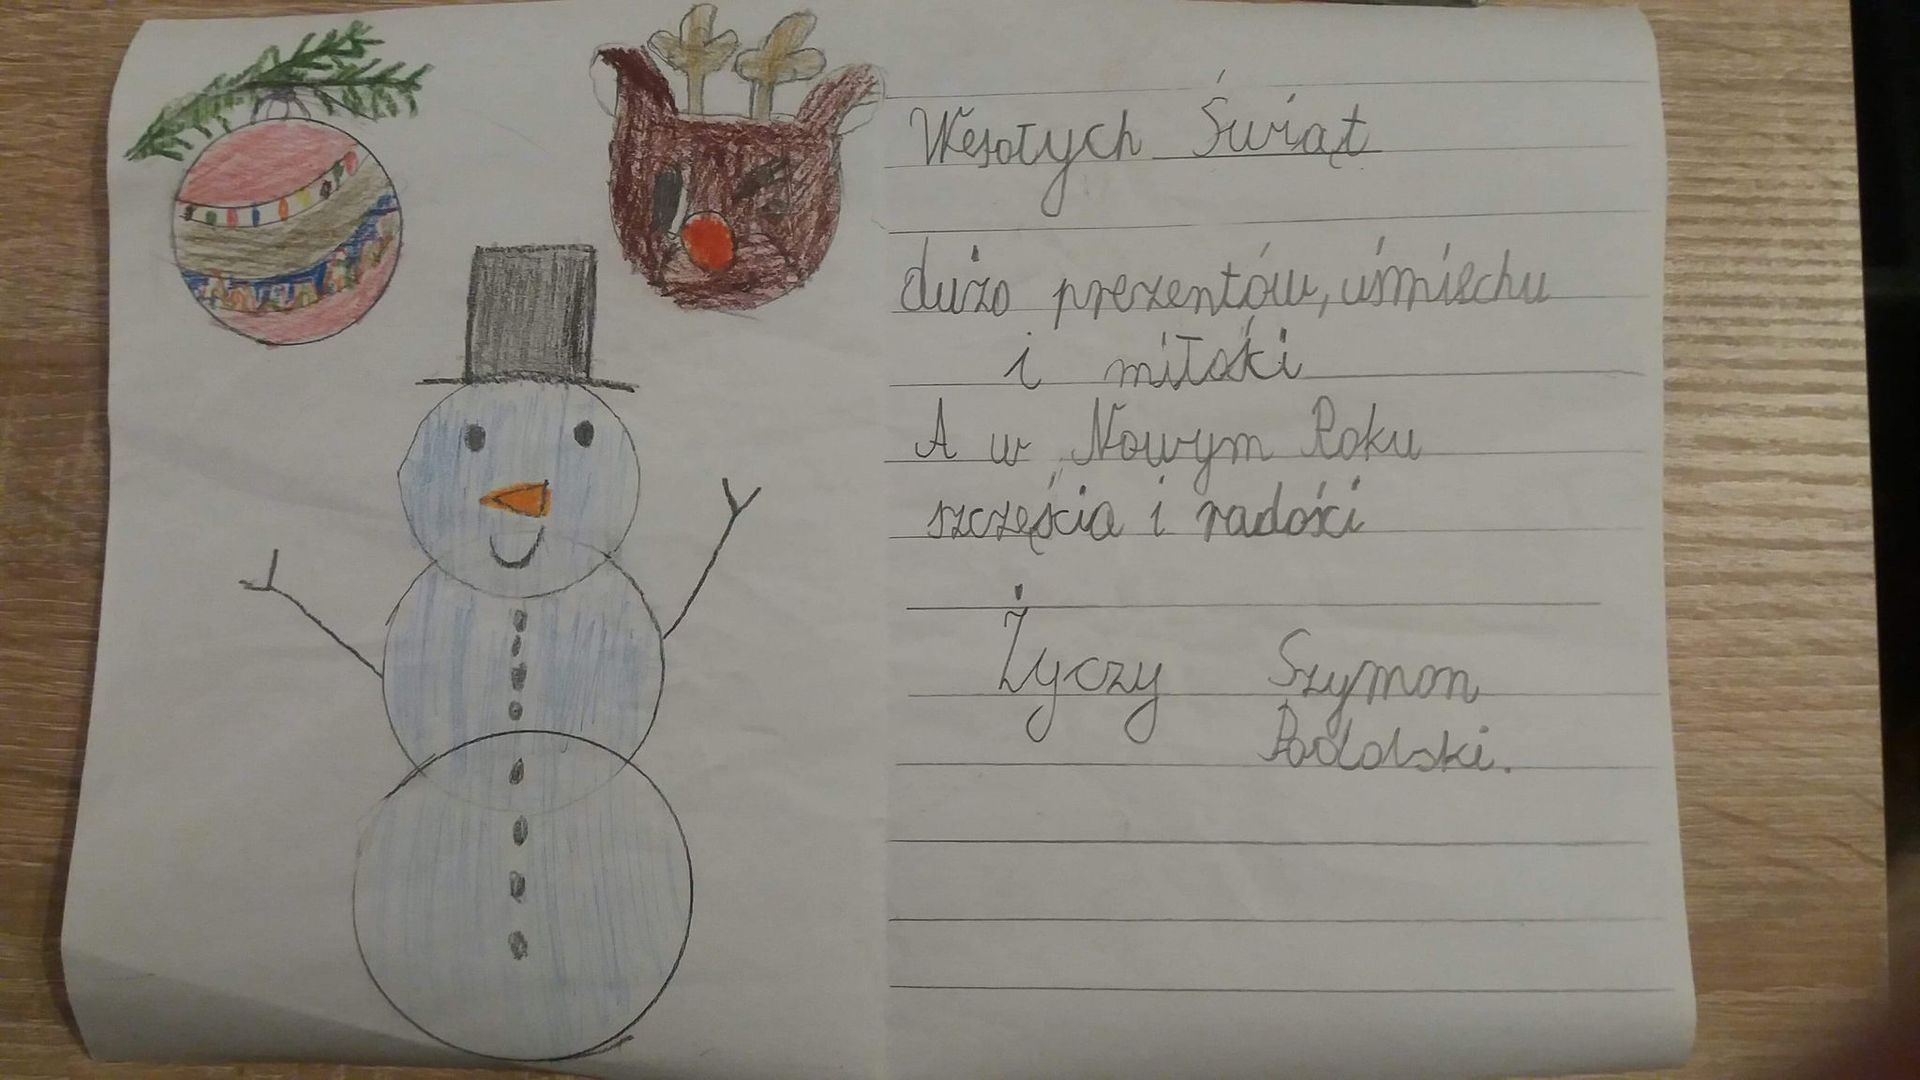 Wesołych Świąt
dużo prezentów, uśmiechu
i miłości
A w Nowym Roku
szczęścia i radości
Życzy Szymon
Podolski.